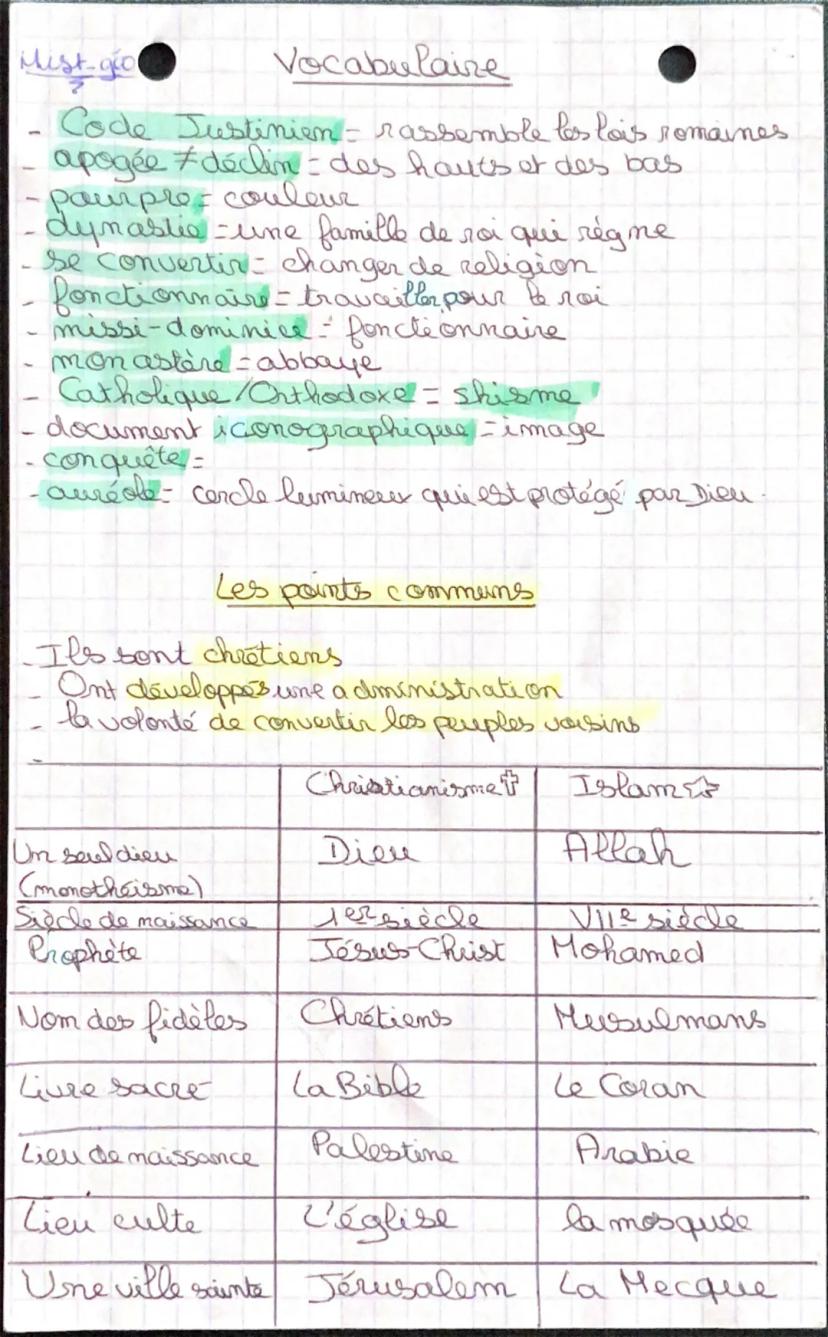 Hist-géo
Vocabulaire
- Code Justinien = rassemble les lois romaines
- apogée ≠ déclin = des hauts et des bas
- pourpre = couleur
- dynastie = une famille de roi qui règne
- se convertir = changer de religion
- fonctionnaire = travailler pour le roi
- missi-dominici = fonctionnaire
- monastère = abbaye
- Catholique/Orthodoxe = shisme
- document iconographique = image
- conquête =
- auréole = cercle lumineux qui est protégé par Dieu.
Les points communs
- Ils sont chrétiens
- Ont développés une administration
- la volonté de convertir les peuples voisins
-
Christianisme Islam
Un seul dieu Dieu Allah
(monothéisme)
Siècle de naissance 1er siècle VIIe siècle
Prophète Jésus-Christ Mohamed
Nom des fidèles Chrétiens Musulmans
Livre sacré La Bible Le Coran
Lieu de naissance Palestine Arabie
Lieu culte L'église la mosquée
Une ville sainte Jérusalem La Mecque